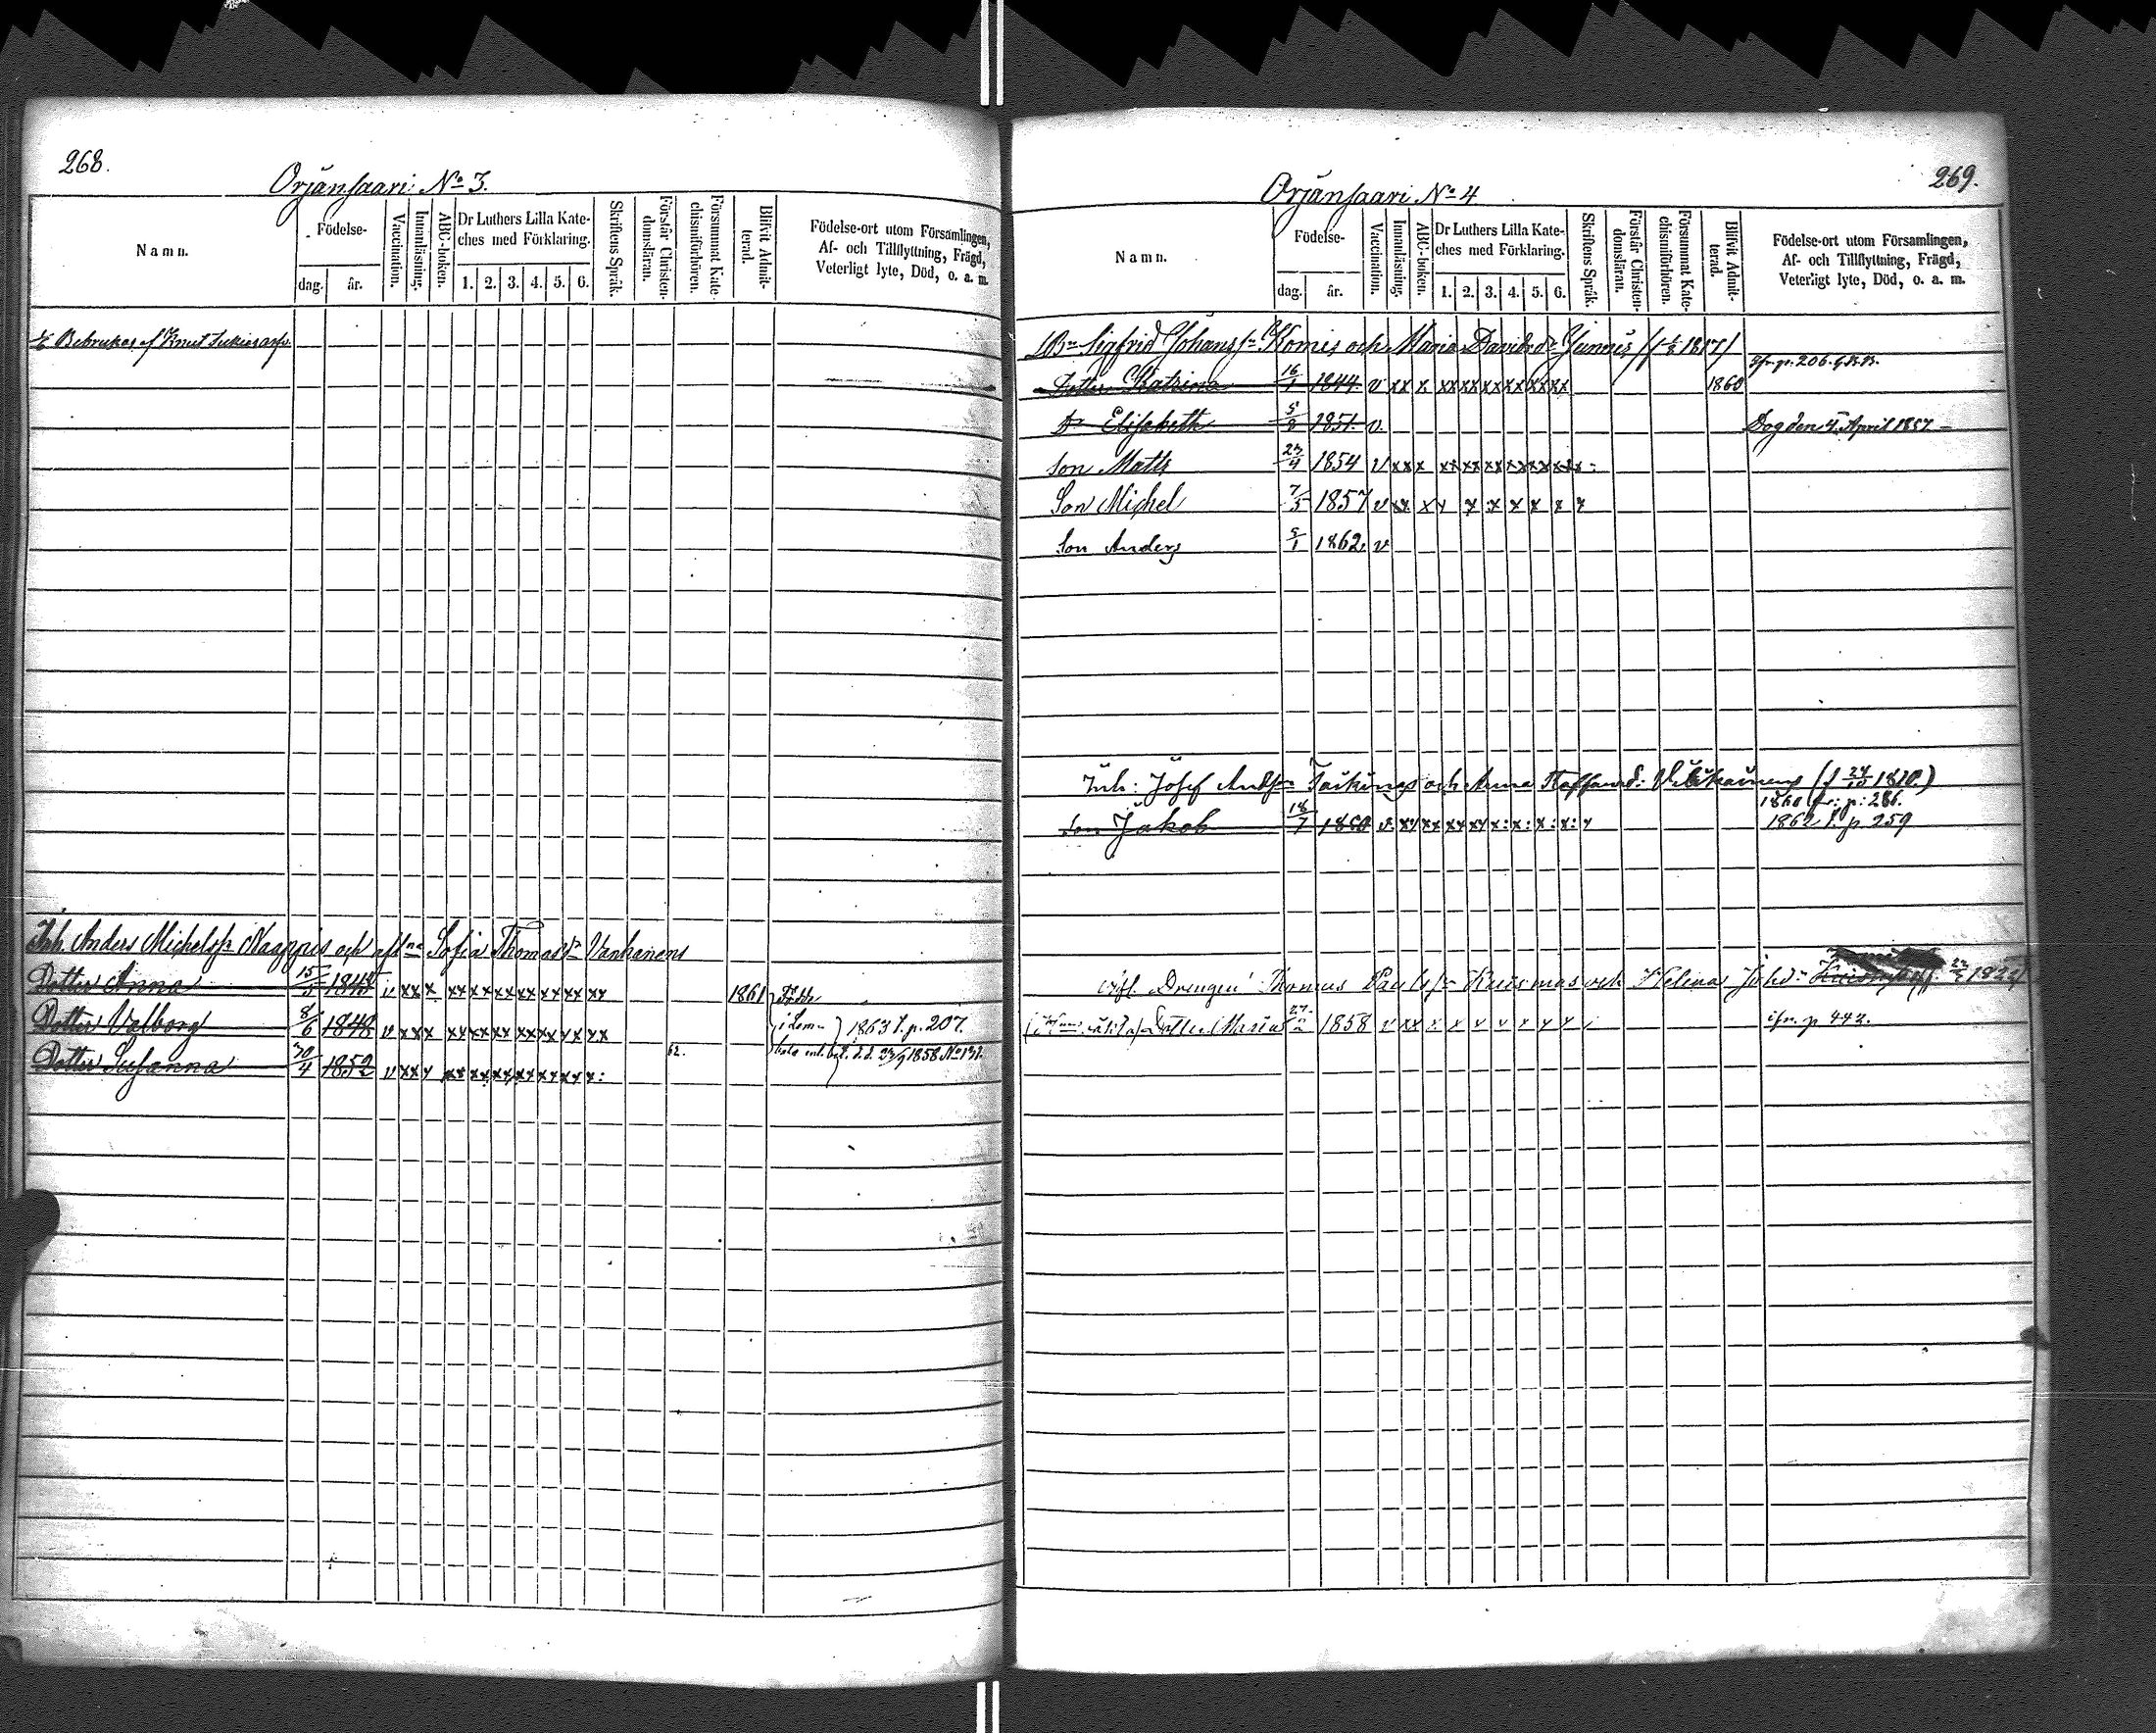 268.
Orjänsaari No 3.
Namn.
Födelse-
dag.
år.
Vaccination.
Innanläsning.
ABC-boken.
Dr Luthers Lilla Kate-
ches med Förklaring.
1. 2. 3. 4. 5. 6.
Skriftens Språk.
Förstår Christen-
domsläran.
Försummat Kate-
chismiförhören.
Blifvit Admit-
terad.
Födelse-ort utom Församlingen,
Af- och Tillflyttning, Frägd,
Veterligt lyte, Död, o. a. m.
Brukas af Knut
Inh. Anders Michelss: Naappis och Sofia Thomasdr Vanhanens
Dotter Anna 15/5 v xxx xx xx xx xx xx xx xx 1861 Födde
Dotter Valborg 8/6 1848 v xxx xx xx xx xx xx xx xx i Lem 1863 t. p. 207.
Dotter Susanna 30/4 1852 v xxx xx xx xx xx xx xx x: 62. bet. d.d. 23/9 1858 No 132.
269.
Orjänsaari No 4
Namn.
Födelse-
dag.
år.
Vaccination.
Innanläsning.
ABC-boken.
Dr Luthers Lilla Kate-
ches med Förklaring.
1. 2. 3. 4. 5. 6.
Skriftens Språk.
Förstår Christen-
domsläran.
Försummat Kate-
chismiförhören.
Blifvit Admit-
terad.
Födelse-ort utom Församlingen,
Af- och Tillflyttning, Frägd,
Veterligt lyte, Död, o. a. m.
Bn Sigfrid Johanss: Komis och Maria Davidsdr Junnis 1817
p. 206.
Dotter Katrina 16/1 1844 v xx x xx xx xx xx xx xx 1860
Dr Elisabeth 5/8 1851. v. Dog den 4 April 1857
Son Matts 23/4 1854 v xx x xx xx xx xx xx xx x:
Son Michel 7/5 1857 v xx xx x x x x x x
Son Anders 5/1 1862. v
Inh: Josef Andss: och Anna Staffansd: (f 24/10 1810.)
1860 fr: p: 286.
Son Jakob 18/7 1850 v. xx xx xx xx x: x: x: x: x 1862 t. p 259
Drengen Thomas Paulss: Kuismas och Helena Johdr 1824
Dotter Maria 1858 v xx x x x x x x x p 442.